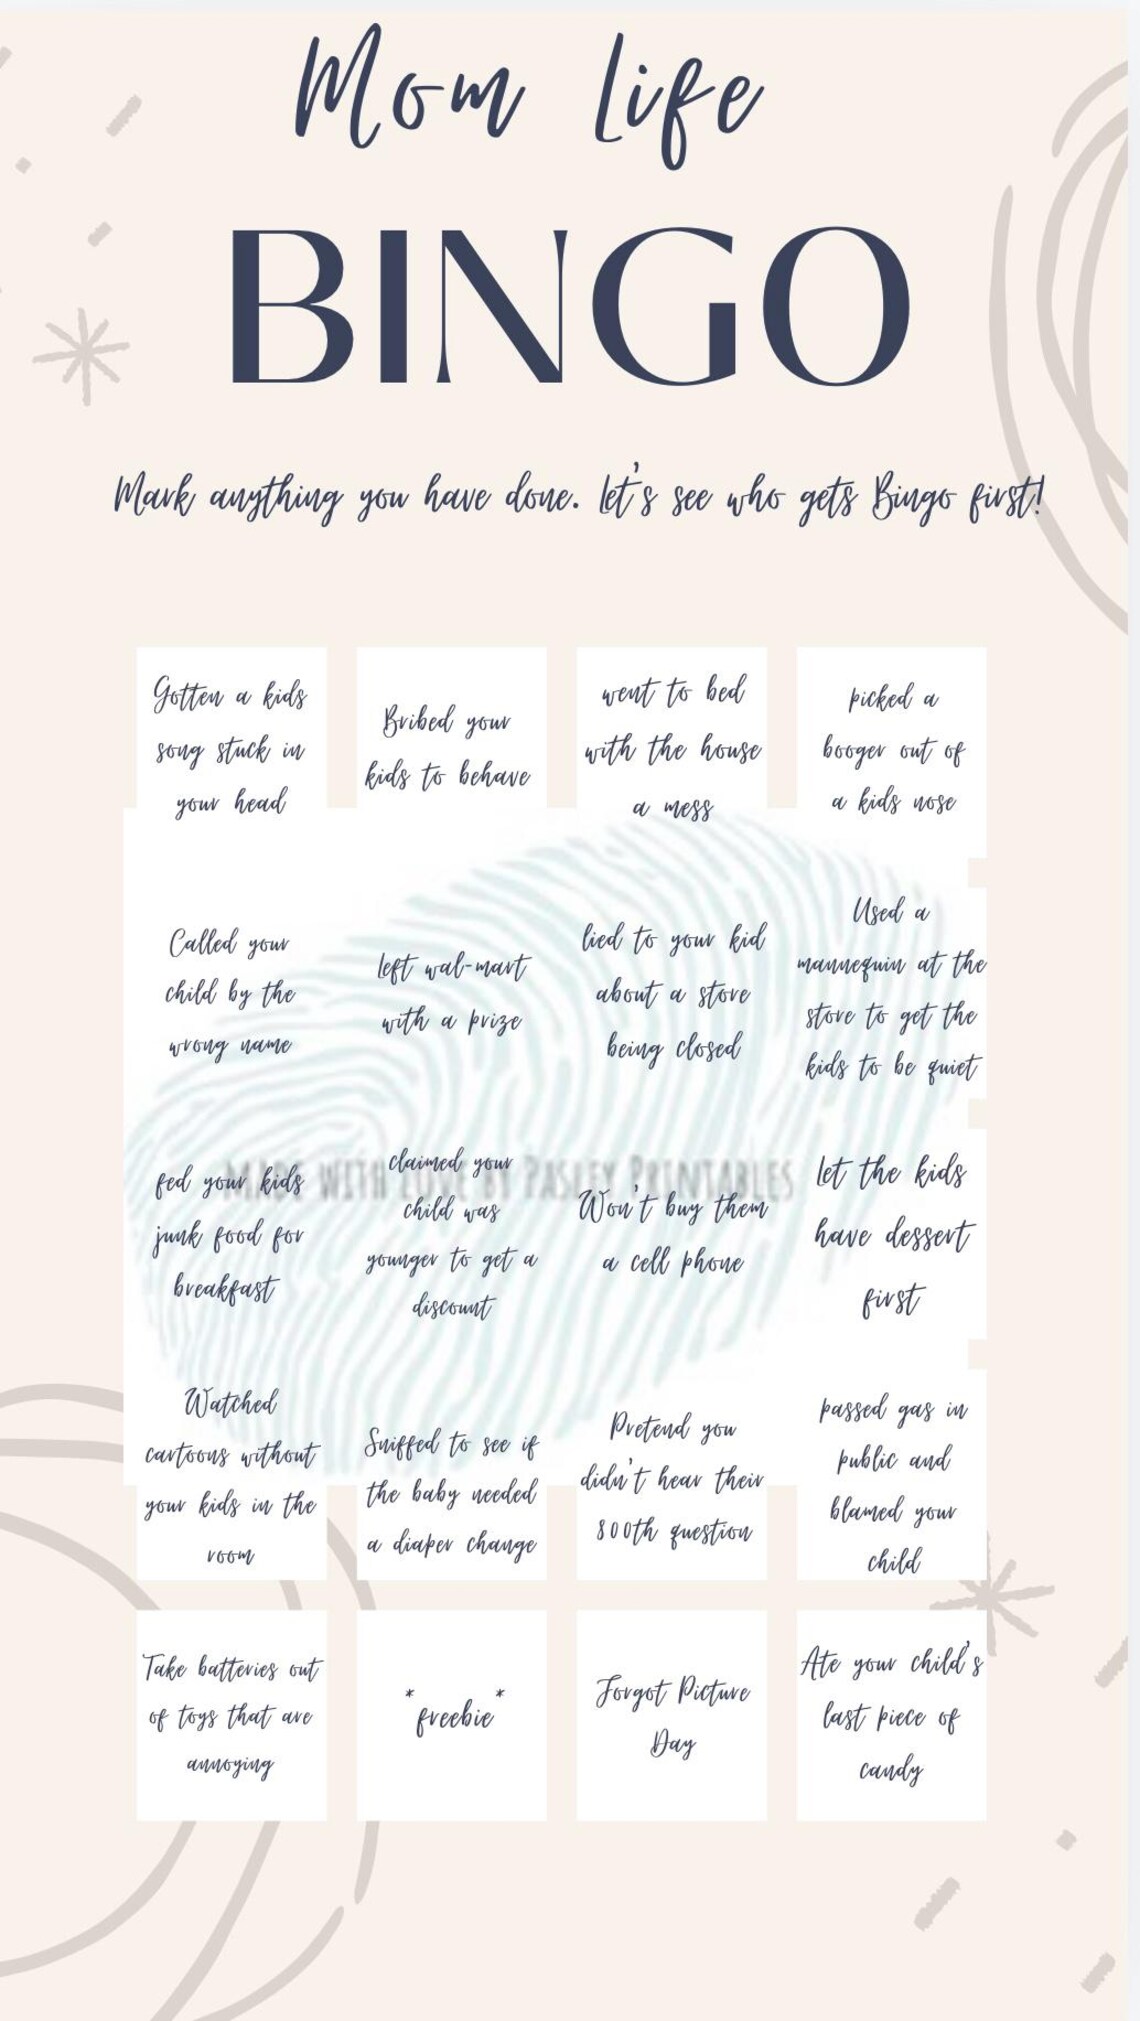 Mom Life
BINGO
Mark anything you have done. let's see who gets Bingo first!
Gotten a kids
song stuck in
your head
Bribed your
kids to behave
went to bed
with the house
a mess
picked a
booger out of
a kids nose
Called your
child by the
wrong name
left wal-mart
with a prize
lied to your kid
about a store
being closed
Used a
mannequin at the
store to get the
kids to be quiet
fed your kids
junk food for
breakfast
claimed your
child was
younger to get a
discount
Won't buy them
a cell phone
let the kids
have dessert
first
MADE WITH LOVE BY PASLEY PRINTABLES
Watched
cartoons without
your kids in the
room
Sniffed to see if
the baby needed
a diaper change
Pretend you
didn't hear their
800th question
passed gas in
public and
blamed your
child
Take batteries out
of toys that are
annoying
*freebie*
Forgot Picture
Day
Ate your child's
last piece of
candy